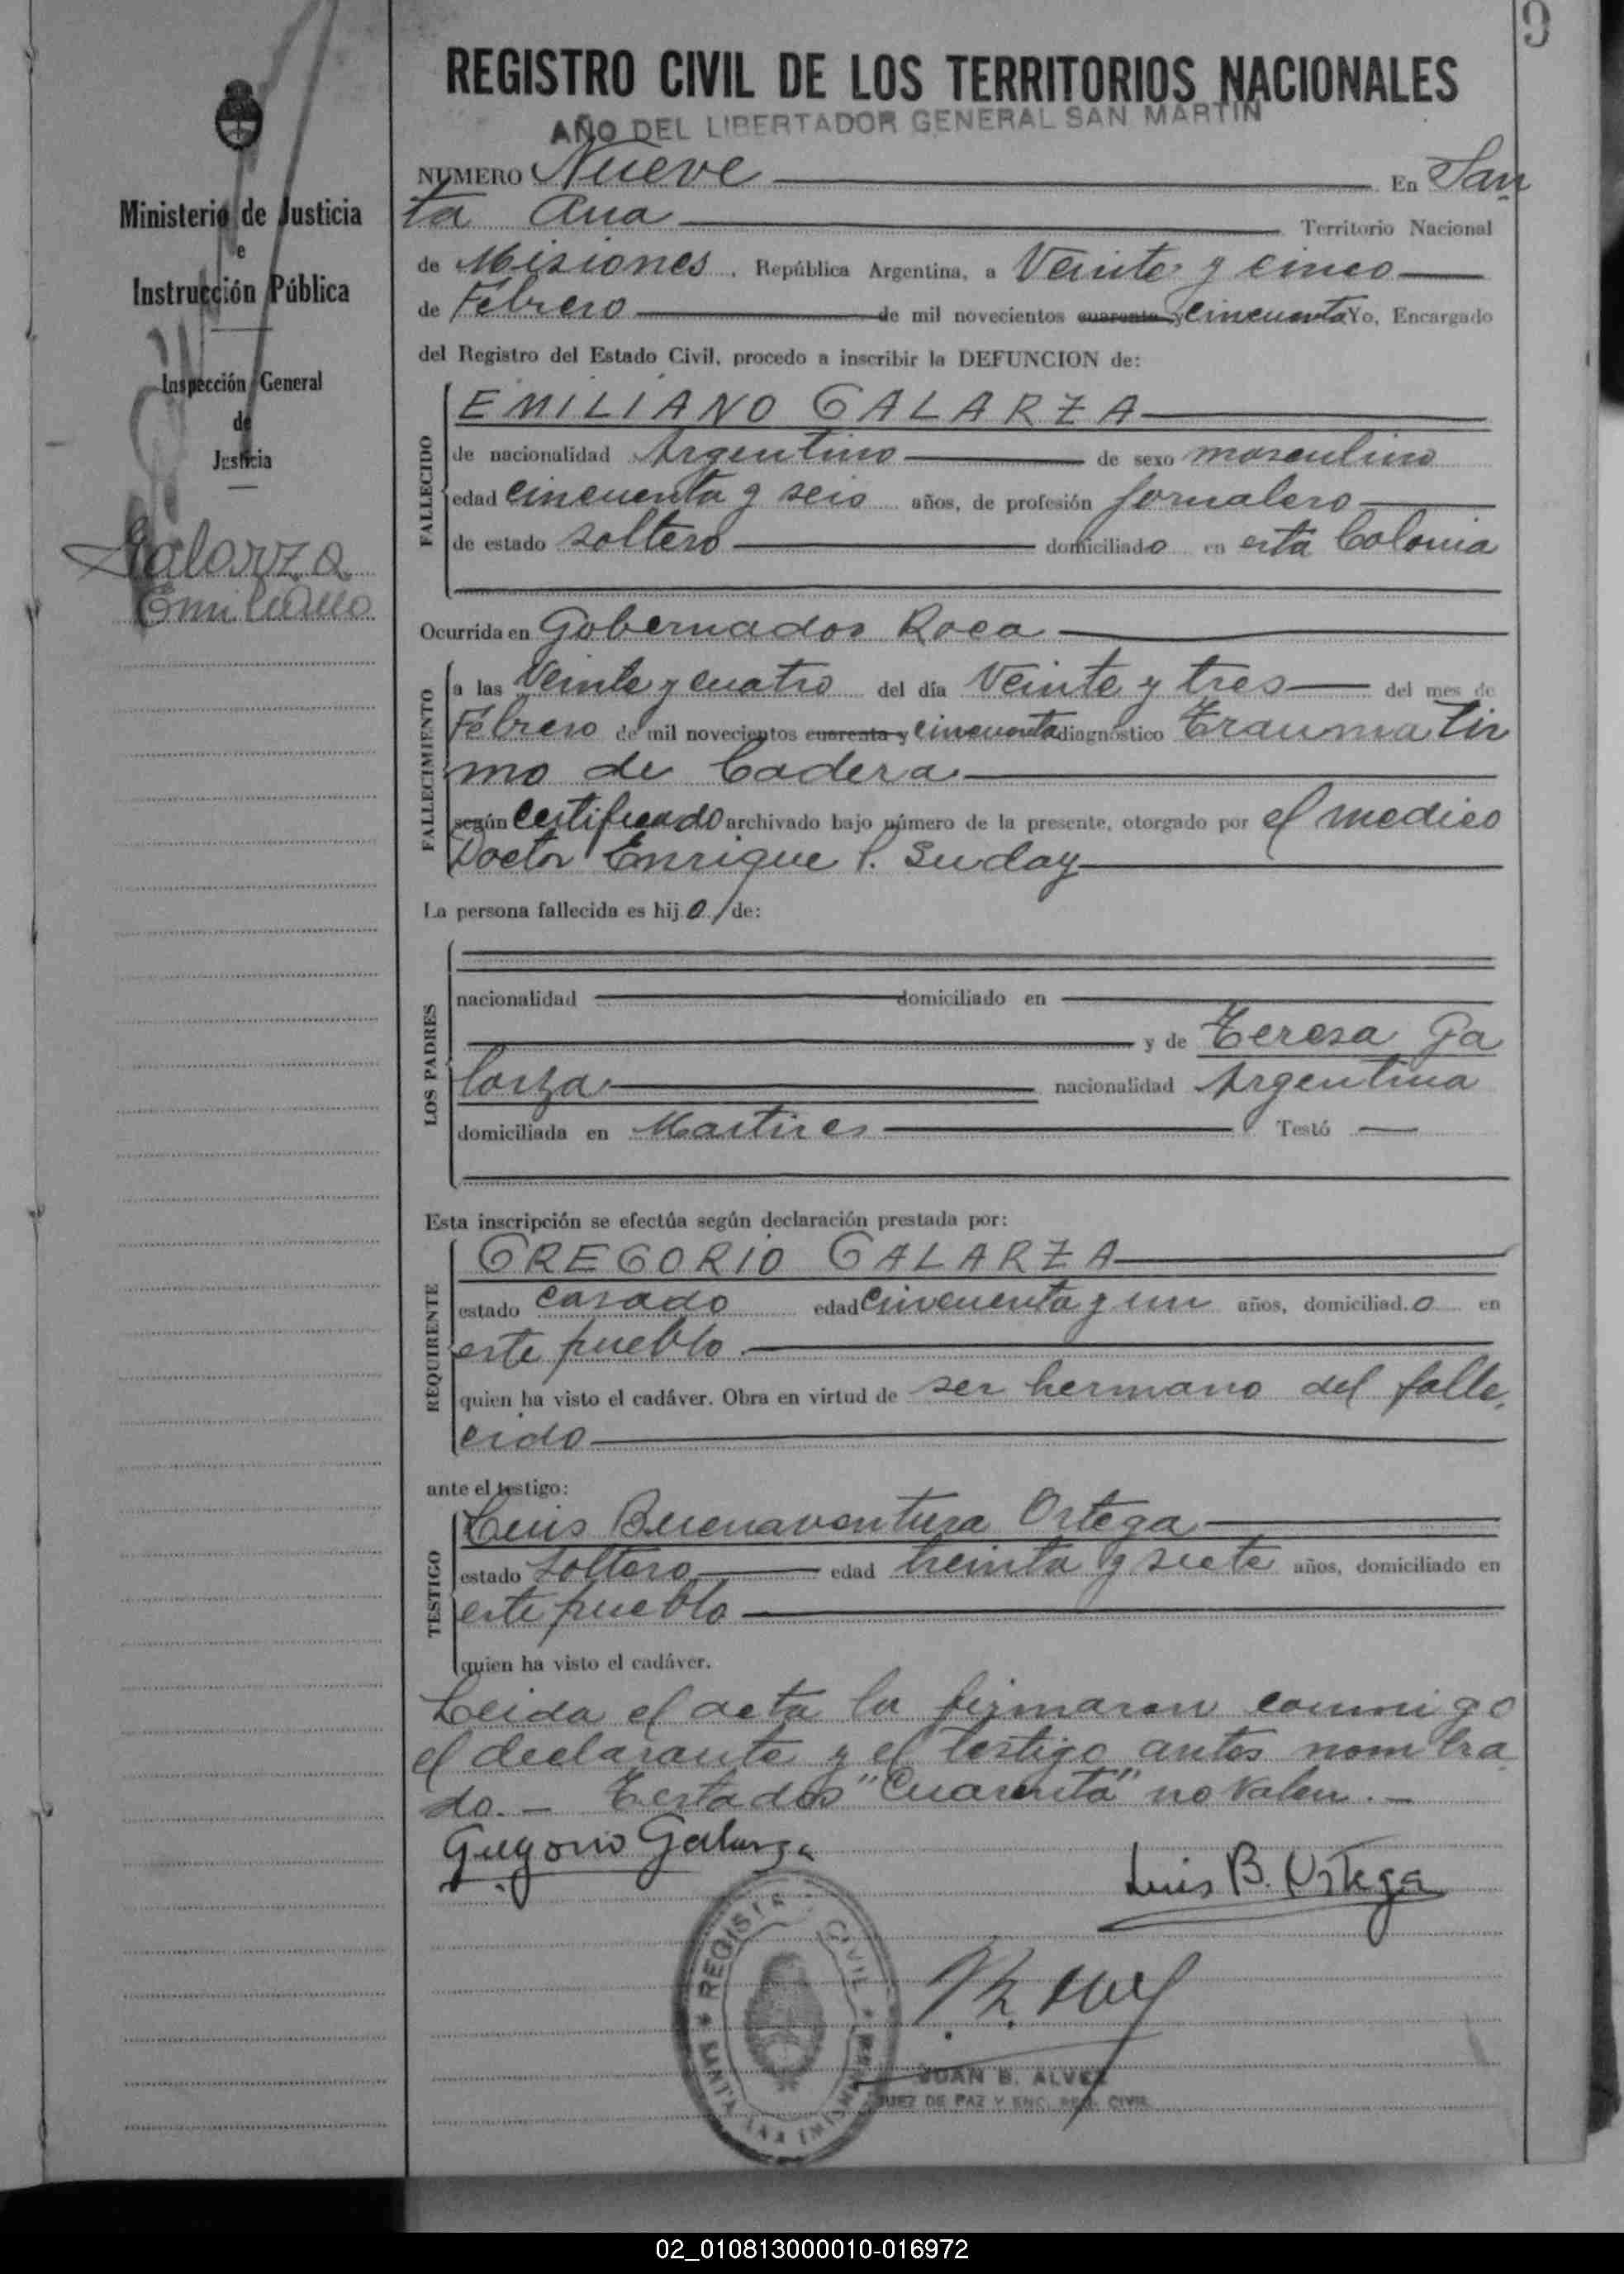 9
REGISTRO CIVIL DE LOS TERRITORIOS NACIONALES
AÑO DEL LIBERTADOR GENERAL SAN MARTIN
Ministerio de Justicia
e
Instrucción Pública
Inspección General
de
Justicia
Galarza
Emiliano
NUMERO Nueve En San
ta Ana Territorio Nacional
de Misiones, República Argentina, a Veinte y cinco
de Febrero de mil novecientos cuarenta y cincuenta Yo, Encargado
del Registro del Estado Civil, procedo a inscribir la DEFUNCION de:
FALLECIDO
EMILIANO GALARZA
de nacionalidad Argentino de sexo masculino
edad cincuenta y seis años, de profesión jornalero
de estado soltero domiciliado en esta Colonia
Ocurrida en Gobernador Roca
FALLECIMIENTO
a las Veinte y cuatro del día Veinte y tres del mes de
Febrero de mil novecientos cuarenta y cincuenta diagnóstico Traumatis
mo de Cadera
según Certificado archivado bajo número de la presente, otorgado por el medico
Doctor Enrique P.
La persona fallecida es hijo de:
LOS PADRES
nacionalidad domiciliado en
y de Teresa Ga
larza nacionalidad Argentina
domiciliada en Martires Testó
Esta inscripción se efectúa según declaración prestada por:
REQUIRENTE
GREGORIO GALARZA
estado casado edad cincuenta y un años, domiciliado en
este pueblo
quien ha visto el cadáver. Obra en virtud de ser hermano del falle,
cido
ante el testigo:
TESTIGO
Luis Buenaventura Ortega
estado soltero edad treinta y siete años, domiciliado en
este pueblo
quien ha visto el cadáver.
Leida el acta la firmaron conmigo
el declarante y el testigo antes nombra
do. – Testados "Cuarenta" no valen. –
Gregorio Galarza
Luis B. Ortega
REGISTRO CIVIL
SANTA ANA (MISIONES)
JUAN B. ALVEZ
JUEZ DE PAZ Y ENC. REG. CIVIL
02_010813000010-016972